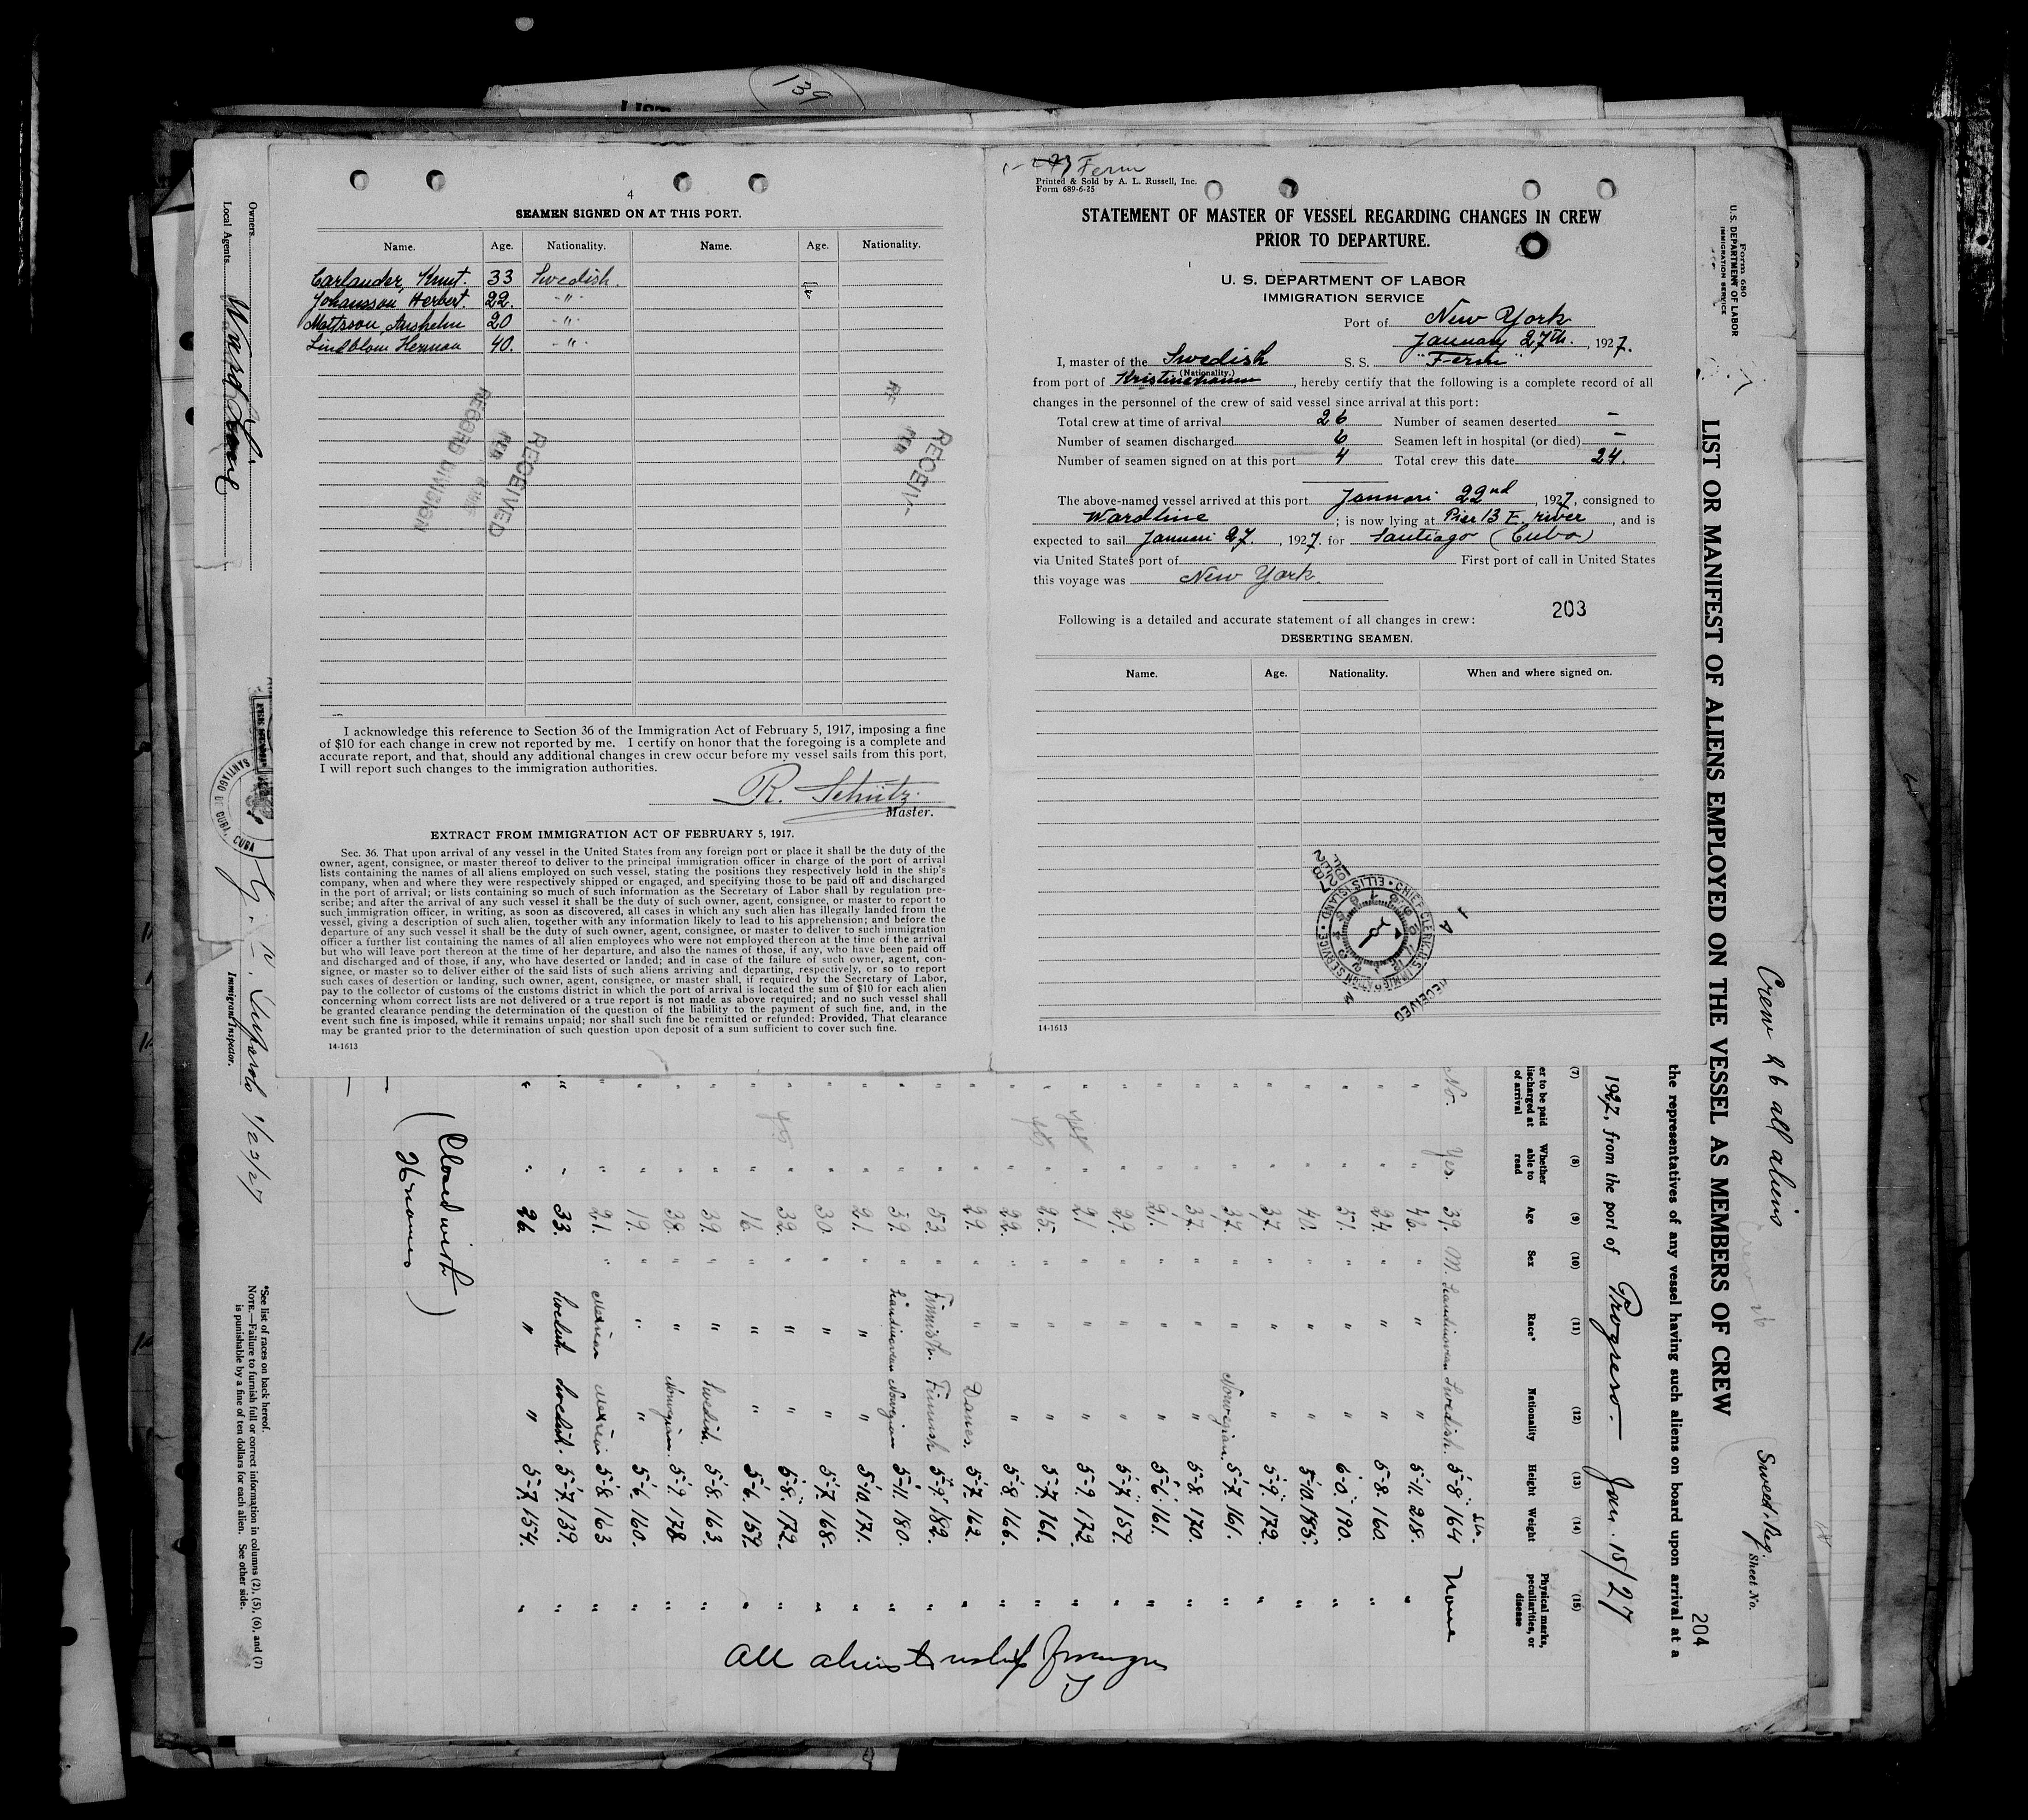 139
4
SEAMEN SIGNED ON AT THIS PORT.
Name. Age. Nationality. Name. Age. Nationality.
Carlander, Knut. 33 Swedish.
Johansson Herbert. 22. - " -
Mattsson, Anshelm 20 - " -
Lindblom Herman 40. - " -
RECEIVED
RECORD DIVISION
I acknowledge this reference to Section 36 of the Immigration Act of February 5, 1917, imposing a fine
of $10 for each change in crew not reported by me. I certify on honor that the foregoing is a complete and
accurate report, and that, should any additional changes in crew occur before my vessel sails from this port,
I will report such changes to the immigration authorities.
R. Schütz.
Master.
EXTRACT FROM IMMIGRATION ACT OF FEBRUARY 5, 1917.
Sec. 36. That upon arrival of any vessel in the United States from any foreign port or place it shall be the duty of the
owner, agent, consignee, or master thereof to deliver to the principal immigration officer in charge of the port of arrival
lists containing the names of all aliens employed on such vessel, stating the positions they respectively hold in the ship's
company, when and where they were respectively shipped or engaged, and specifying those to be paid off and discharged
in the port of arrival; or lists containing so much of such information as the Secretary of Labor shall by regulation pre-
scribe; and after the arrival of any such vessel it shall be the duty of such owner, agent, consignee, or master to report to
such immigration officer, in writing, as soon as discovered, all cases in which any such alien has illegally landed from the
vessel, giving a description of such alien, together with any information likely to lead to his apprehension; and before the
departure of any such vessel it shall be the duty of such owner, agent, consignee, or master to deliver to such immigration
officer a further list containing the names of all alien employees who were not employed thereon at the time of the arrival
but who will leave port thereon at the time of her departure, and also the names of those, if any, who have been paid off
and discharged and of those, if any, who have deserted or landed; and in case of the failure of such owner, agent, con-
signee, or master so to deliver either of the said lists of such aliens arriving and departing, respectively, or so to report
such cases of desertion or landing, such owner, agent, consignee, or master shall, if required by the Secretary of Labor,
pay to the collector of customs of the customs district in which the port of arrival is located the sum of $10 for each alien
concerning whom correct lists are not delivered or a true report is not made as above required; and no such vessel shall
be granted clearance pending the determination of the question of the liability to the payment of such fine, and, in the
event such fine is imposed, while it remains unpaid; nor shall such fine be remitted or refunded: Provided, That clearance
may be granted prior to the determination of such question upon deposit of a sum sufficient to cover such fine.
14-1613
Fern
Printed & Sold by A. L. Russell, Inc.
Form 689-6-25
STATEMENT OF MASTER OF VESSEL REGARDING CHANGES IN CREW
PRIOR TO DEPARTURE.
U. S. DEPARTMENT OF LABOR
IMMIGRATION SERVICE
Port of New York
January 27th., 1927.
I, master of the Swedish S. S. "Fern"
(Nationality.)
from port of Kristinehamn, hereby certify that the following is a complete record of all
changes in the personnel of the crew of said vessel since arrival at this port:
Total crew at time of arrival 26 Number of seamen deserted -
Number of seamen discharged 6 Seamen left in hospital (or died) -
Number of seamen signed on at this port 4 Total crew this date 24.
The above-named vessel arrived at this port Januari 22nd, 1927, consigned to
Wardline; is now lying at Pier 13 E. river, and is
expected to sail Januari 27., 1927, for Santiago (Cuba)
via United States port of First port of call in United States
this voyage was New York.
203
Following is a detailed and accurate statement of all changes in crew:
DESERTING SEAMEN.
Name. Age. Nationality. When and where signed on.
CHIEF CLERK U.S. IMMIGRATION SERVICE • ELLIS ISLAND •
RECEIVED
14-1613
Form 680
U. S. DEPARTMENT OF LABOR
IMMIGRATION SERVICE
Crew 26 all aliens
Swed. Reg.
Sheet No.
204
LIST OR MANIFEST OF ALIENS EMPLOYED ON THE VESSEL AS MEMBERS OF CREW
the representatives of any vessel having such aliens on board upon arrival at a
1927, from the port of Progreso. Jan. 15/27
(7) (8) (9) (10) (11) (12) (13) (14) (15)
er to be paid discharged at of arrival Whether able to read Age Sex Race* Nationality Height Weight Physical marks, peculiarities, or disease
No. Yes. 39. M. Scandinavian Swedish. 5-8 164 None
" " 46. " " " 5-11. 218. "
" " 24. " " " 5-8. 160. "
" " 51. " " " 6-0. 190. "
" " 40. " " " 5-10. 185. "
" " 37. " " " 5-9. 172. "
" " 37. " " Norwegian. 5-7. 161. "
" " 37. " " " 5-8. 170. "
" " 21. " " " 5-6. 161. "
" " 29. " " " 5-7. 159. "
yes " 21. " " " 5-9. 172. "
yes " 25. " " " 5-7. 161. "
" " 22. " " " 5-8. 166. "
" " 29. " " Danes. 5-7. 162. "
" " 53. " Finnish. Finnish 5-9. 182. "
" " 39. " Scandinavian Norwegian 5-11. 180. "
" " 21. " " " 5-10. 171. "
" " 30. " " " 5-7. 168. "
yes " 32. " " " 5-8. 172. "
" " 16. " " " 5-6. 159. "
" " 39. " " Swedish. 5-8. 163. "
" " 38. " " Norwegian. 5-9. 178. "
" " 19. " " " 5-6. 160. "
" " 21. " Mexican Mexican 5-8 163 "
" " 33. " Swedish Swedish. 5-7. 139. "
" " 26. " " " 5-7. 154. "
(Closed with
26 names)
All aliens
Owners
Local Agents Ward Line
FEE STAMP
SANTIAGO DE CUBA, CUBA
1/23/27
Immigrant Inspector.
*See list of races on back hereof.
NOTE.—Failure to furnish full or correct information in columns (2), (5), (6), and (7)
is punishable by a fine of ten dollars for each alien. See other side.